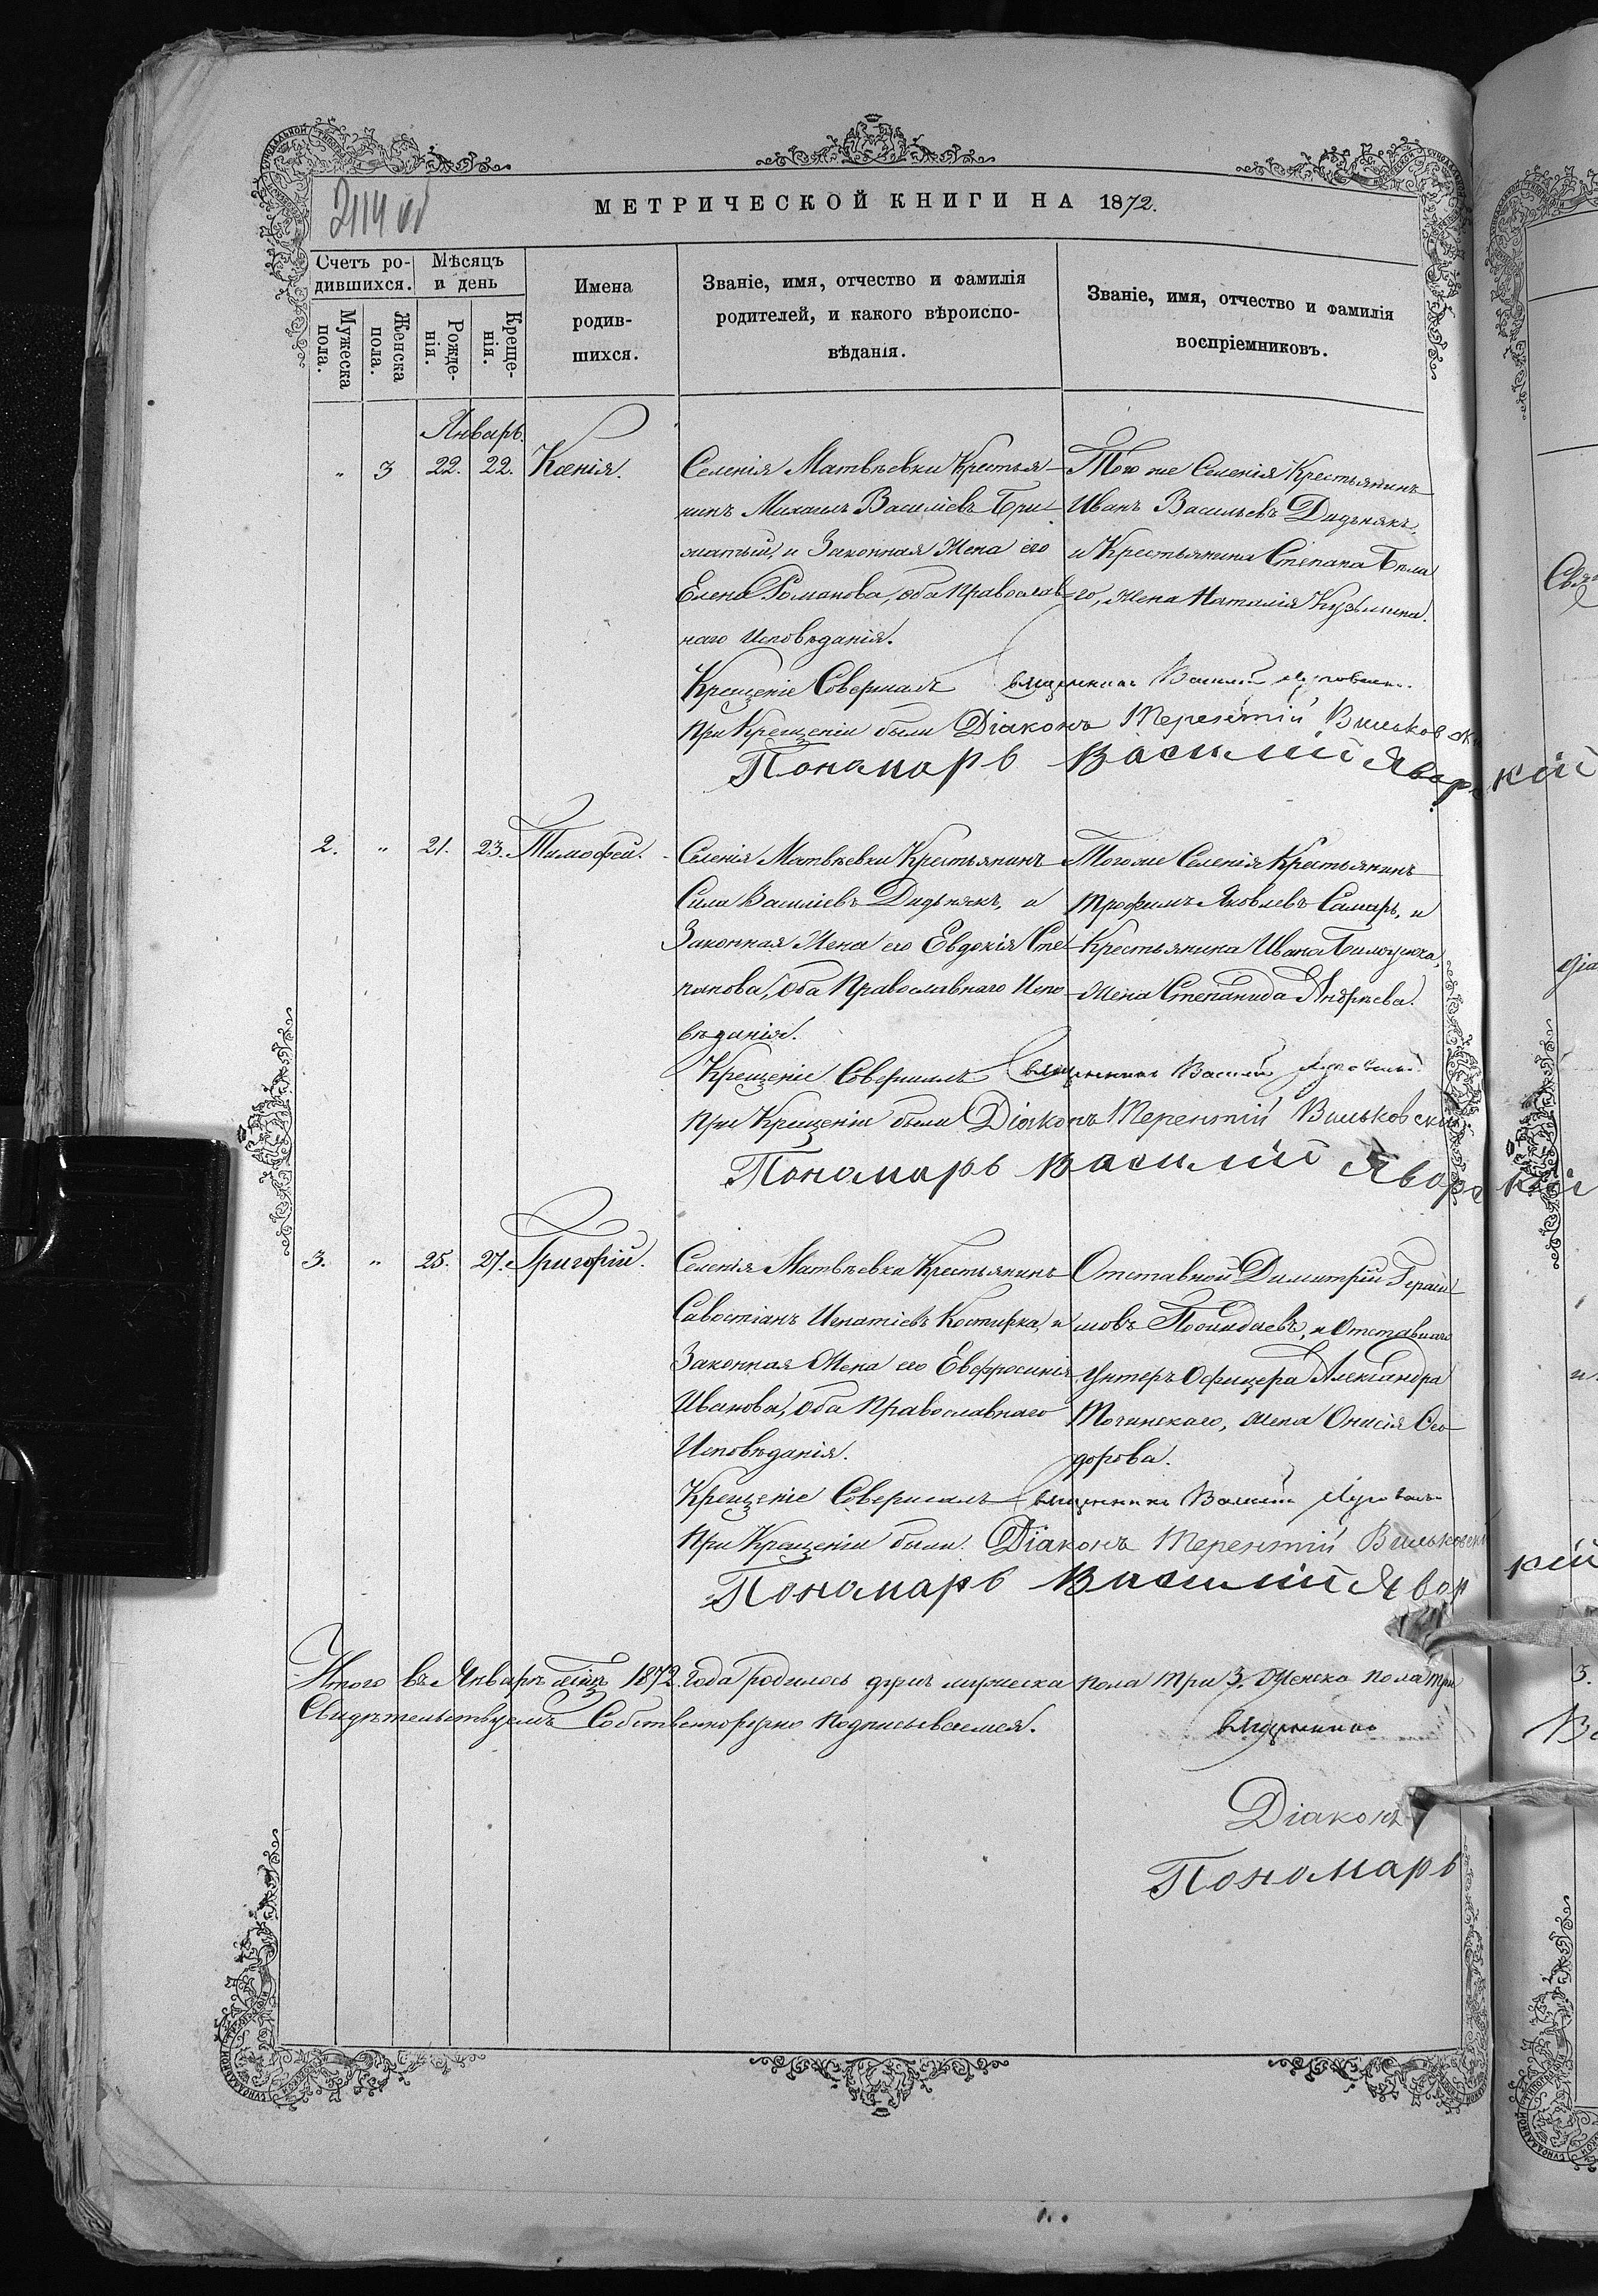 2114 об
МЕТРИЧЕСКОЙ КНИГИ НА 1872.
Счетъ родившихся.
Мѣсяцъ и день
Мужеска пола.
Женска пола.
Рожденія.
Крещенія.
Имена родившихся.
Званіе, имя, отчество и фамилія
родителей, и какого вѣроиспо-
вѣданія.
Званіе, имя, отчество и фамилія
воспріемниковъ.
Январь.
" 3 22. 22. Ксенія.
Селенія Матвѣевки Крестья-
нинъ Михаилъ Василіевъ При-
матый, и Законная Жена его
Елена Романова, оба Православ-
наго Исповѣданія.
Того же Селенія Крестьянинъ
Иванъ Васильевъ Дидьнякъ,
и Крестьянина Степана Бѣла
го, жена Наталія Кузьмина.
Крещеніе Совершалъ Священникъ Василій
При Крещеніи были Діаконъ Терентій Вильковскій
Пономарь Василій Яворскій
2. " 21. 23. Тимофей.
Селенія Матвѣевки Крестьянинъ
Сила Василіевъ Дидьнякъ, и
Законная Жена его Евдокія Сте-
панова, оба Православнаго Испо-
вѣданія.
Того же Селенія Крестьянинъ
Трофимъ Яковлевъ Самарь, и
Крестьянина Ивана
Жена Степанида Андрѣева.
Крещеніе Совершалъ Священникъ Василій
При Крещеніи были Діаконъ Терентій Вильковскій
Пономарь Василій Яворскій
3. " 25. 27. Григорій.
Селенія Матвѣевки Крестьянинъ
Савостіанъ Игнатіевъ Костирка, и
Законная Жена его Евфросинія
Иванова, оба Православнаго
Исповѣданія.
Отставной Димитрій Гераси
мовъ и Отставнаго
Унтеръ Офицера Александра
Точинскаго, жена Онисія Ѳео-
дорова.
Крещеніе Совершалъ Священникъ Василій
При Крещеніи были Діаконъ Терентій Вильковскій
Пономарь Василій Яворскій
Итого въ Январѣ мѣсяцѣ 1872 Года родилось душъ мужеска пола три 3. Женска пола три 3.
Свидѣтельствуемъ Собственноручно подписываемся.
Священникъ
Діаконъ
Пономарь